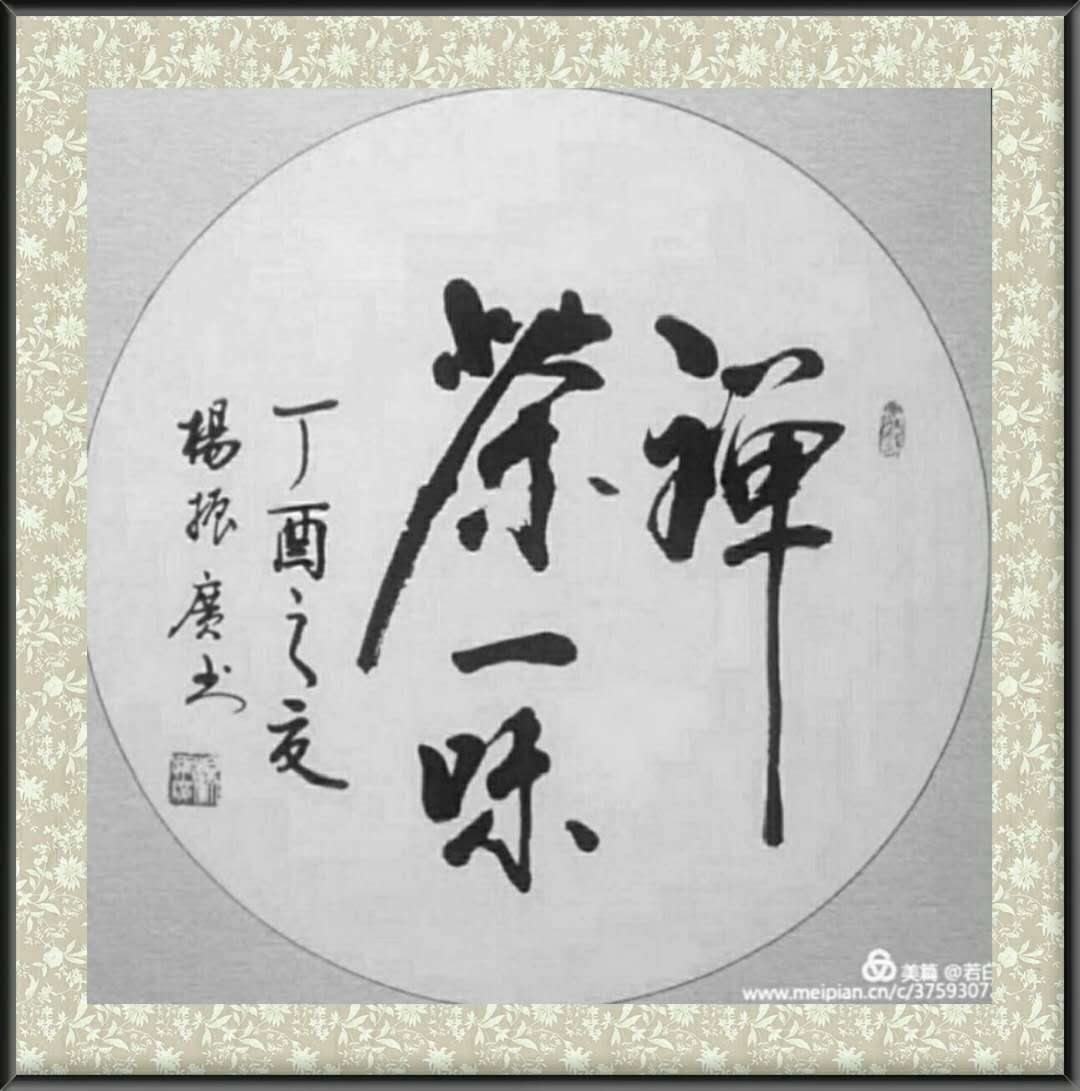 禪
茶一味
丁酉之夏
楊振廣书
美篇 @若白
www.meipian.cn/c/3759307